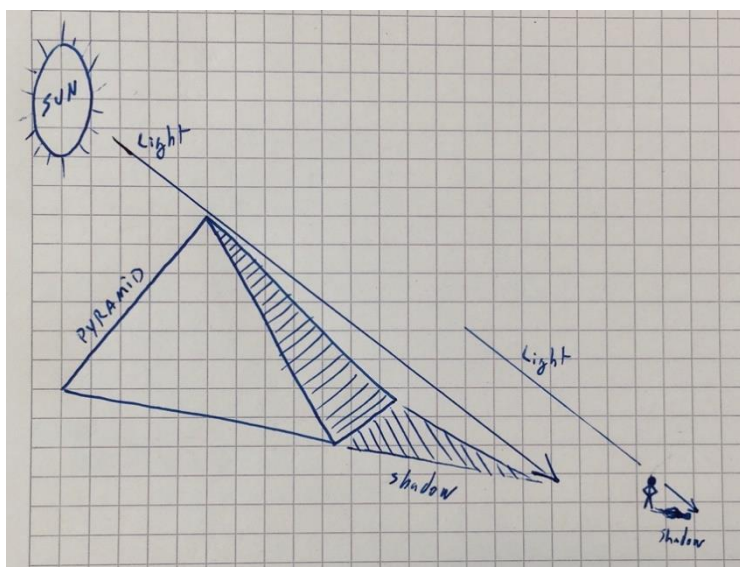 SUN
Light
PYRAMID
Light
shadow
shadow